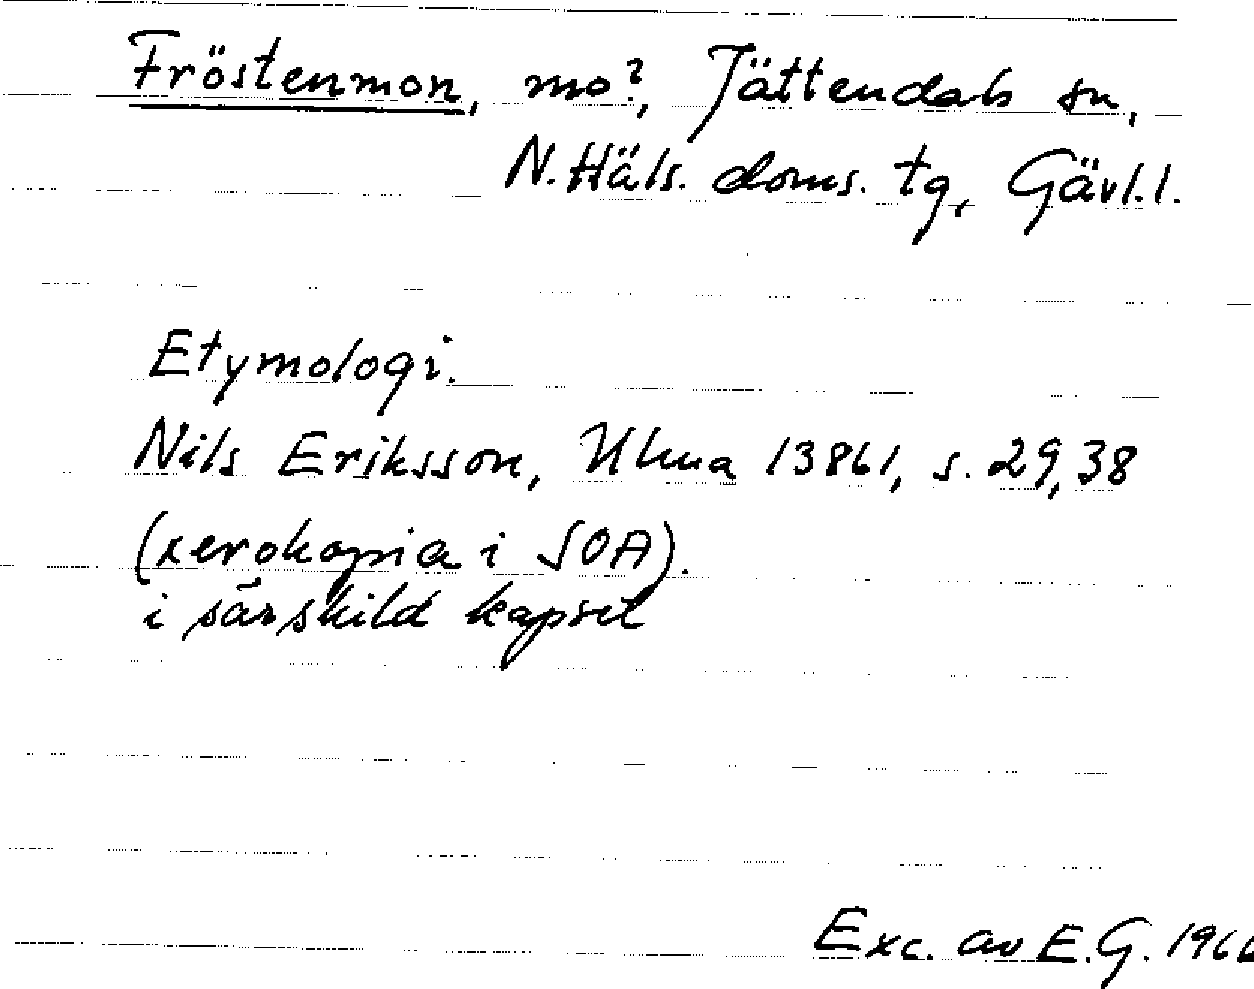 Fröstenmon, mo?, Jättendals sn,
N. Häls. doms. tg, Gävl. l.
Etymologi.
Nils Eriksson, Ulma 13861, s. 29, 38
(xerokopia i SOA).
i särskild kapsel
Exc. av E.G. 1966